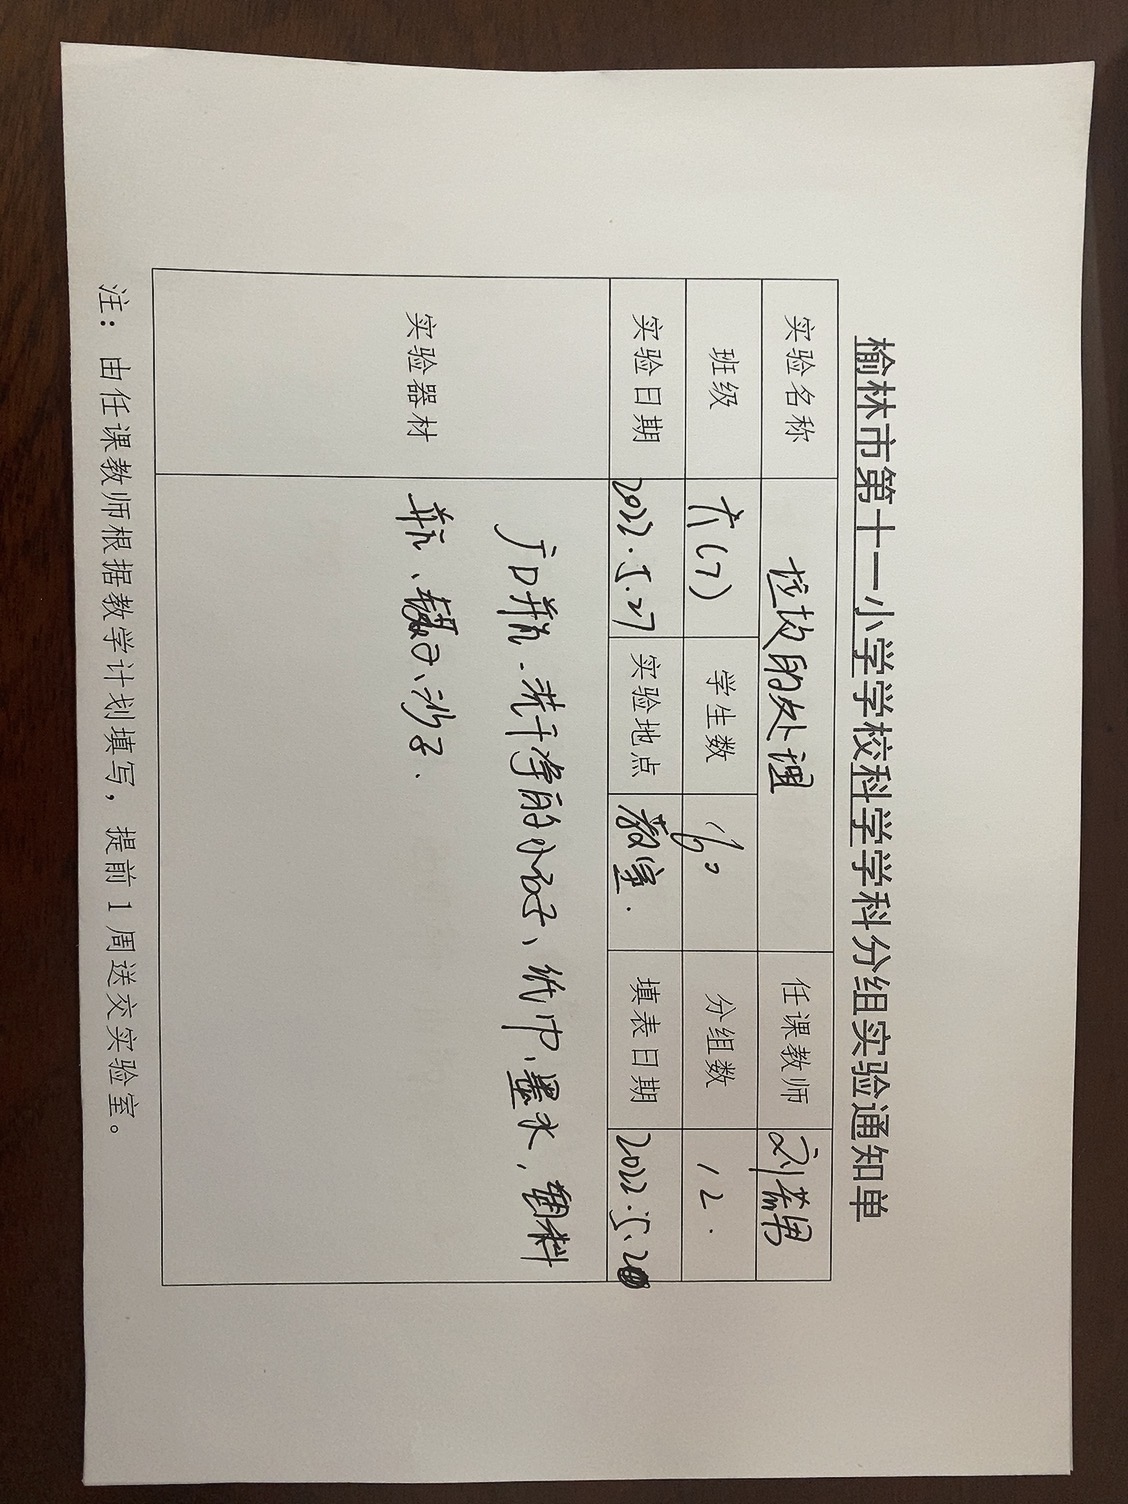 榆林市第十一小学学校科学学科分组实验通知单
实验名称 垃圾的处理 任课教师
班级 六(7) 学生数 60 分组数 12.
实验日期 2022.5.27 实验地点 教室. 填表日期 2022.5.20
实验器材
广口瓶、洗干净的小石子、纸巾、墨水,塑料
瓶、镊子、沙子.
注：由任课教师根据教学计划填写，提前1周送交实验室。